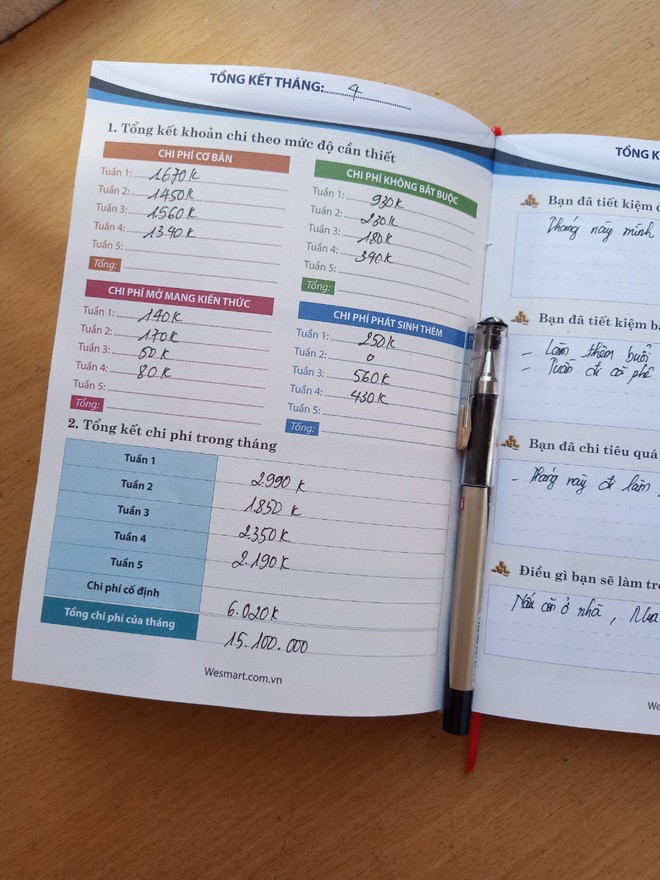 TỔNG KẾT THÁNG: 4
1. Tổng kết khoản chi theo mức độ cần thiết
CHI PHÍ CƠ BẢN
Tuần 1: 1670K
Tuần 2: 1450K
Tuần 3: 1560K
Tuần 4: 1340K
Tuần 5:
Tổng:
CHI PHÍ KHÔNG BẮT BUỘC
Tuần 1: 930K
Tuần 2: 230K
Tuần 3: 180K
Tuần 4: 340K
Tuần 5:
Tổng:
CHI PHÍ MỞ MANG KIẾN THỨC
Tuần 1: 140K
Tuần 2: 170K
Tuần 3: 50K
Tuần 4: 80K
Tuần 5:
Tổng:
CHI PHÍ PHÁT SINH THÊM
Tuần 1: 250K
Tuần 2: 0
Tuần 3: 560K
Tuần 4: 430K
Tuần 5:
Tổng:
2. Tổng kết chi phí trong tháng
Tuần 1 2.990K
Tuần 2 1.850K
Tuần 3 2.350K
Tuần 4 2.190K
Tuần 5
Chi phí cố định 6.020K
Tổng chi phí của tháng 15.100.000
Wesmart.com.vn
TỔNG K
Bạn đã tiết kiệm
Tháng này mình
Bạn đã tiết kiệm
- Làm thêm buổi
- Tuần đi cà phê
Bạn đã chi tiêu quá
- Tháng này đi làm,
Điều gì bạn sẽ làm
Nấu ăn ở nhà,